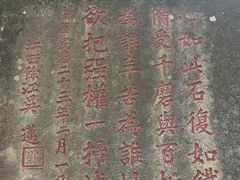 心如此石復如鐵
備受千磨與百
為誰辛苦為誰
欲把强權一掃
中華民國二十三年二月一
江西徐江吳邁